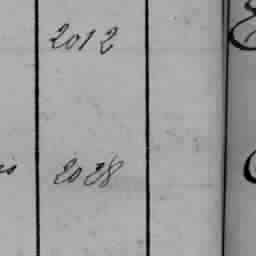 2012
2028